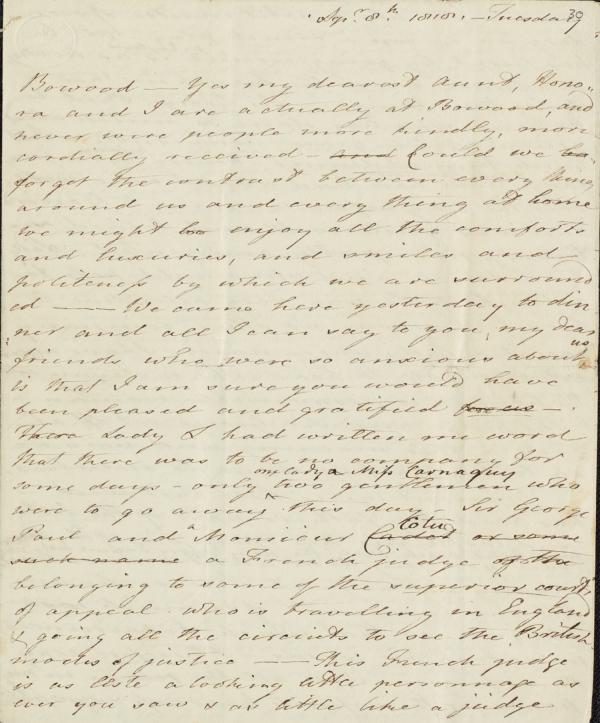 30
Sepr. 8th. 1818. – Tuesday
Bowood – Yes my dearest Aunt, Hono-
ra and I are actually at Bowood, and
never were people more kindly, more
cordially received – and Could we be
forget the contrast between every thing
around us and every thing at home
we might be enjoy all the comforts
and luxuries, and smiles and
politeness by which we are surround
ed — We came here yesterday to din
ner and all I can say to you, my dear
friends who were so anxious about us
is that I am sure you would have
been pleased and gratified for us –
There Lady L had written me word
that there was to be no company for
one Lady, a Miss Carnaquy
some days – only two gentlemen who
were to go away ^ this day – Sir George
Cotu
Paul and a Monsieur Cadet or some
such name a French judge of the
belonging to some of the superior courts
of appeal who is travelling in England
& going all the circuits to see the British
modes of justice — This French judge
is as little a looking little personage as
ever you saw & as little like a judge